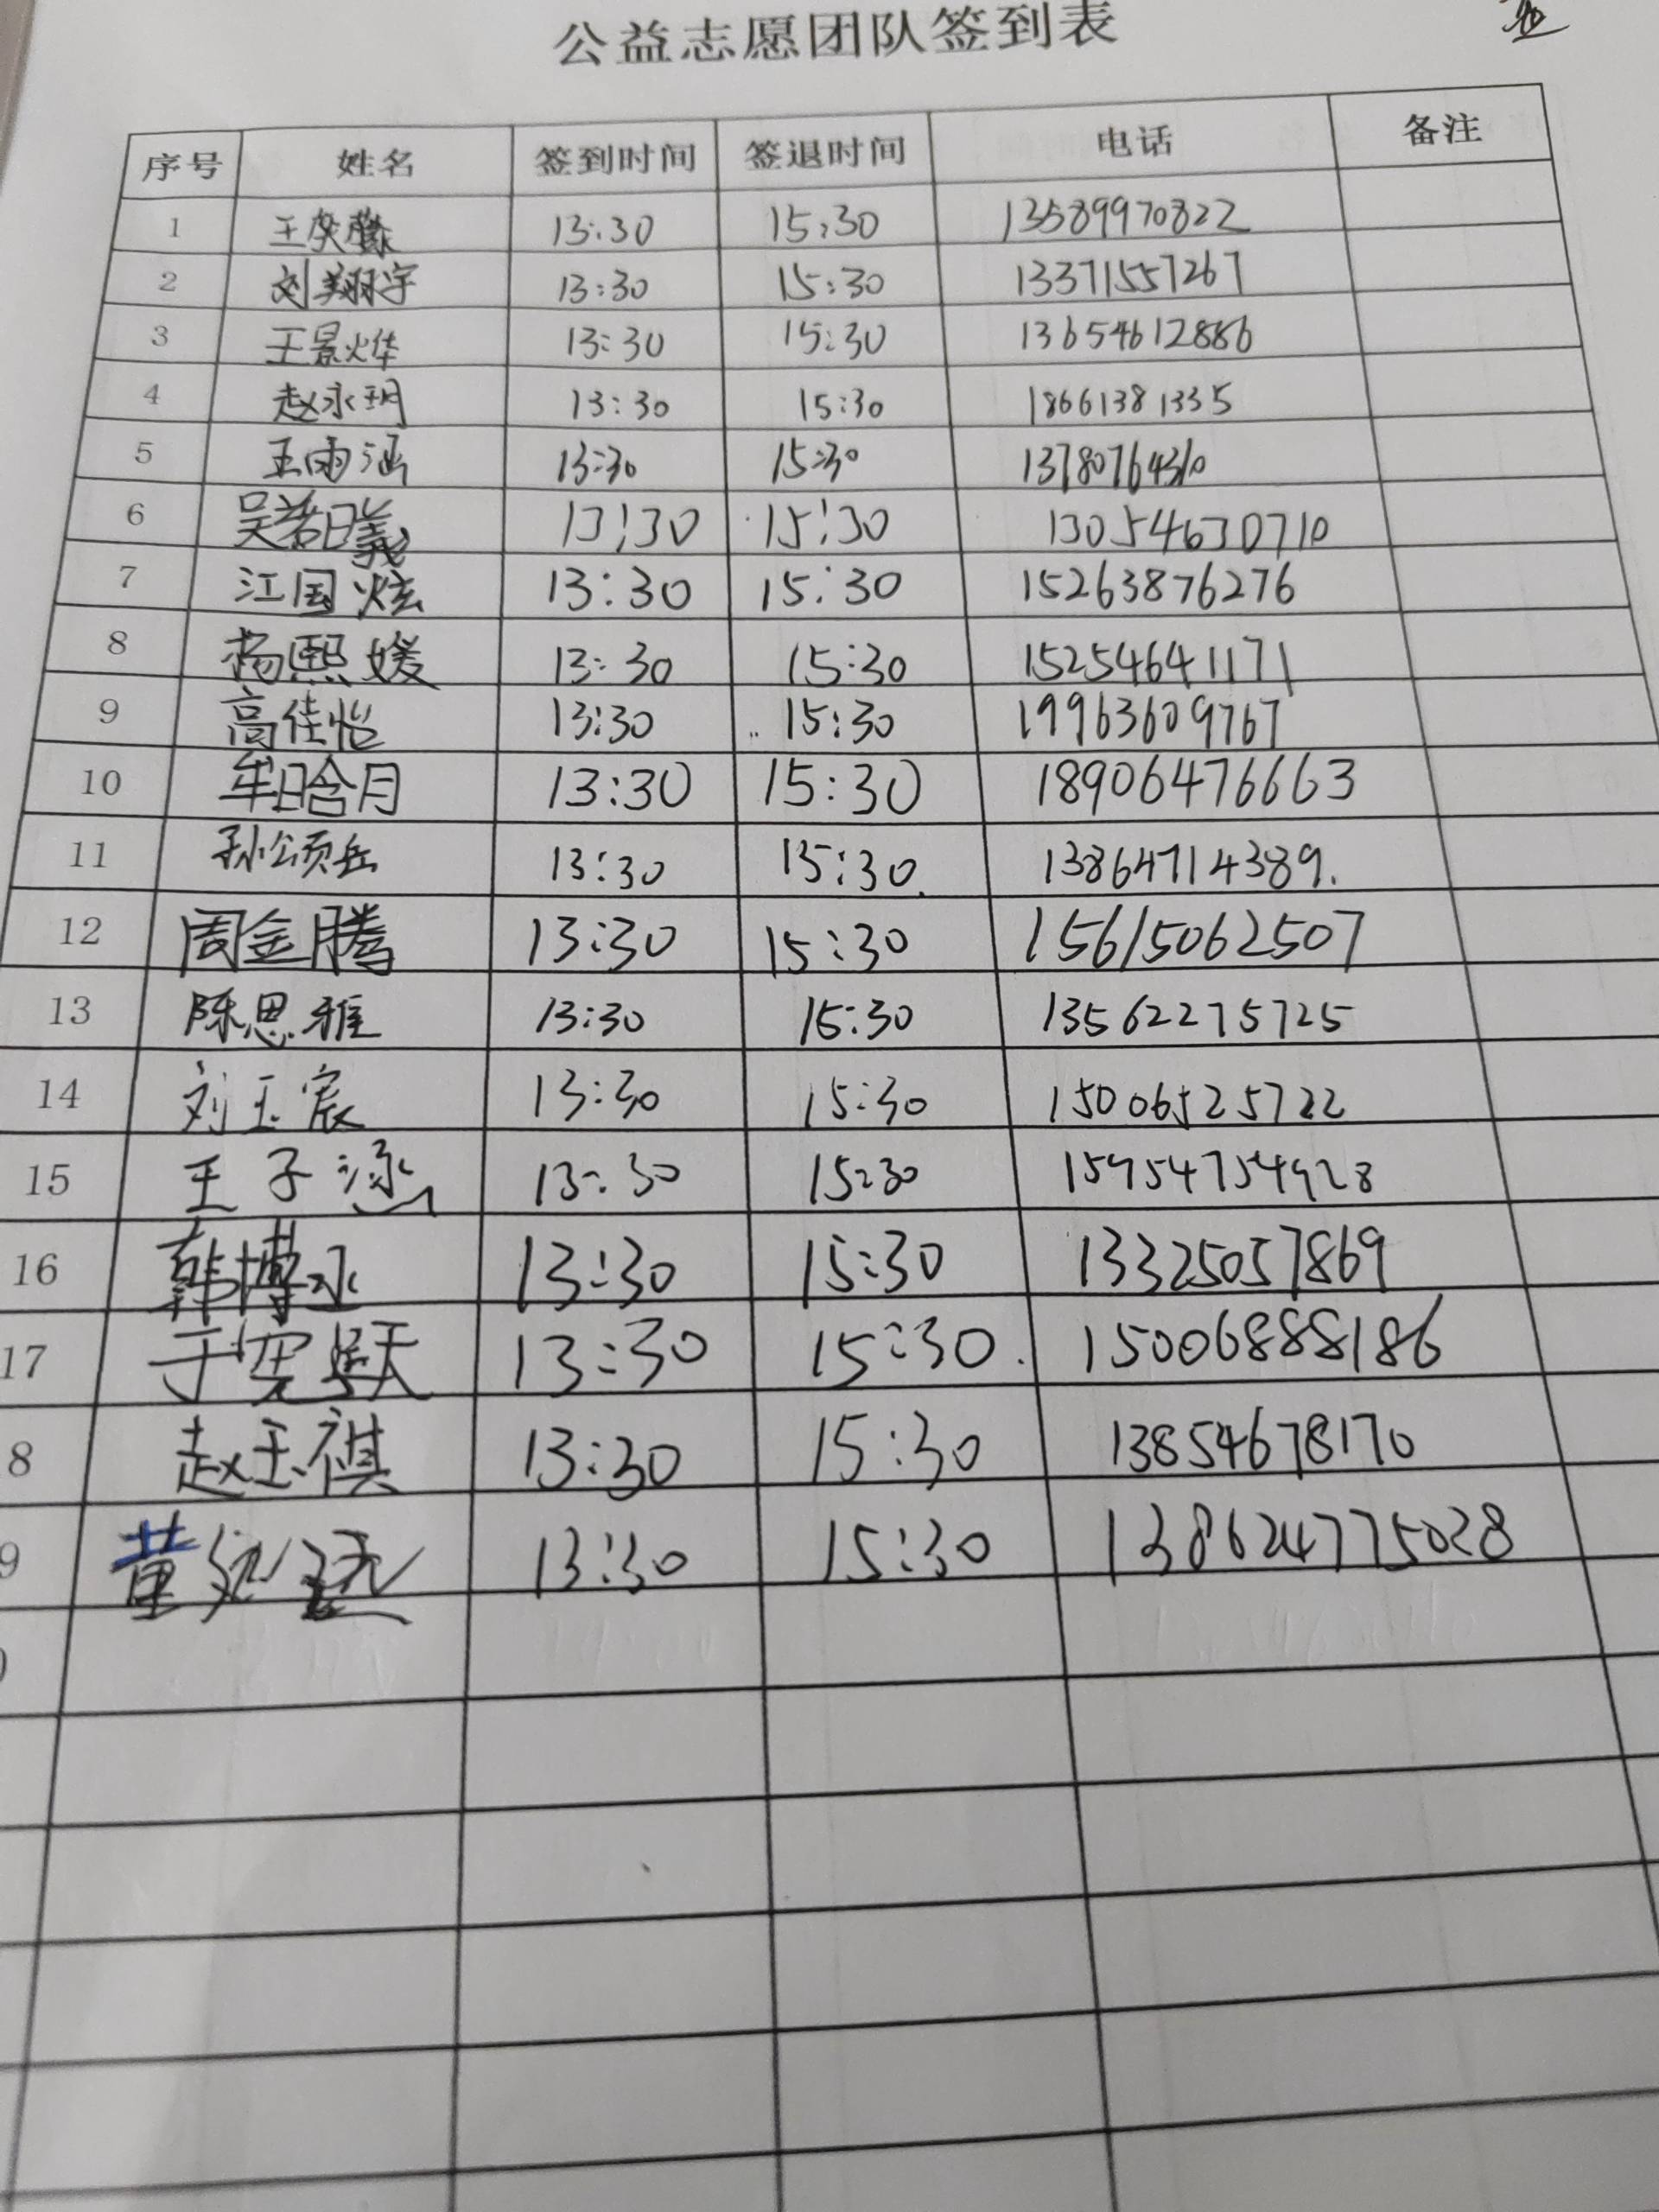 公益志愿团队签到表
序号 姓名 签到时间 签退时间 电话 备注
1 13:30 15:30 13589970822
2 刘翔宇 13:30 15:30 13371557267
3 王景烨 13:30 15:30 13654612886
4 赵永玥 13:30 15:30 18661381335
5 王雨涵 13:30 15:30
6 吴若曦 13:30 15:30 13054630710
7 江国炫 13:30 15:30 15263876276
8 杨熙媛 13:30 15:30 15254641171
9 高佳怡 13:30 15:30 19963609767
10 牟晗月 13:30 15:30 18906476663
11 孙颂岳 13:30 15:30 13864714389.
12 周金腾 13:30 15:30 15615062507
13 陈思雅 13:30 15:30 13562275725
14 刘玉宸 13:30 15:30 15006525722
15 王子涵 13:30 15:30 15954754928
16 韩博永 13:30 15:30 13325057869
17 13:30 15:30. 15006888186
8 赵玉祺 13:30 15:30 13854678170
9 13:30 15:30 138624775028